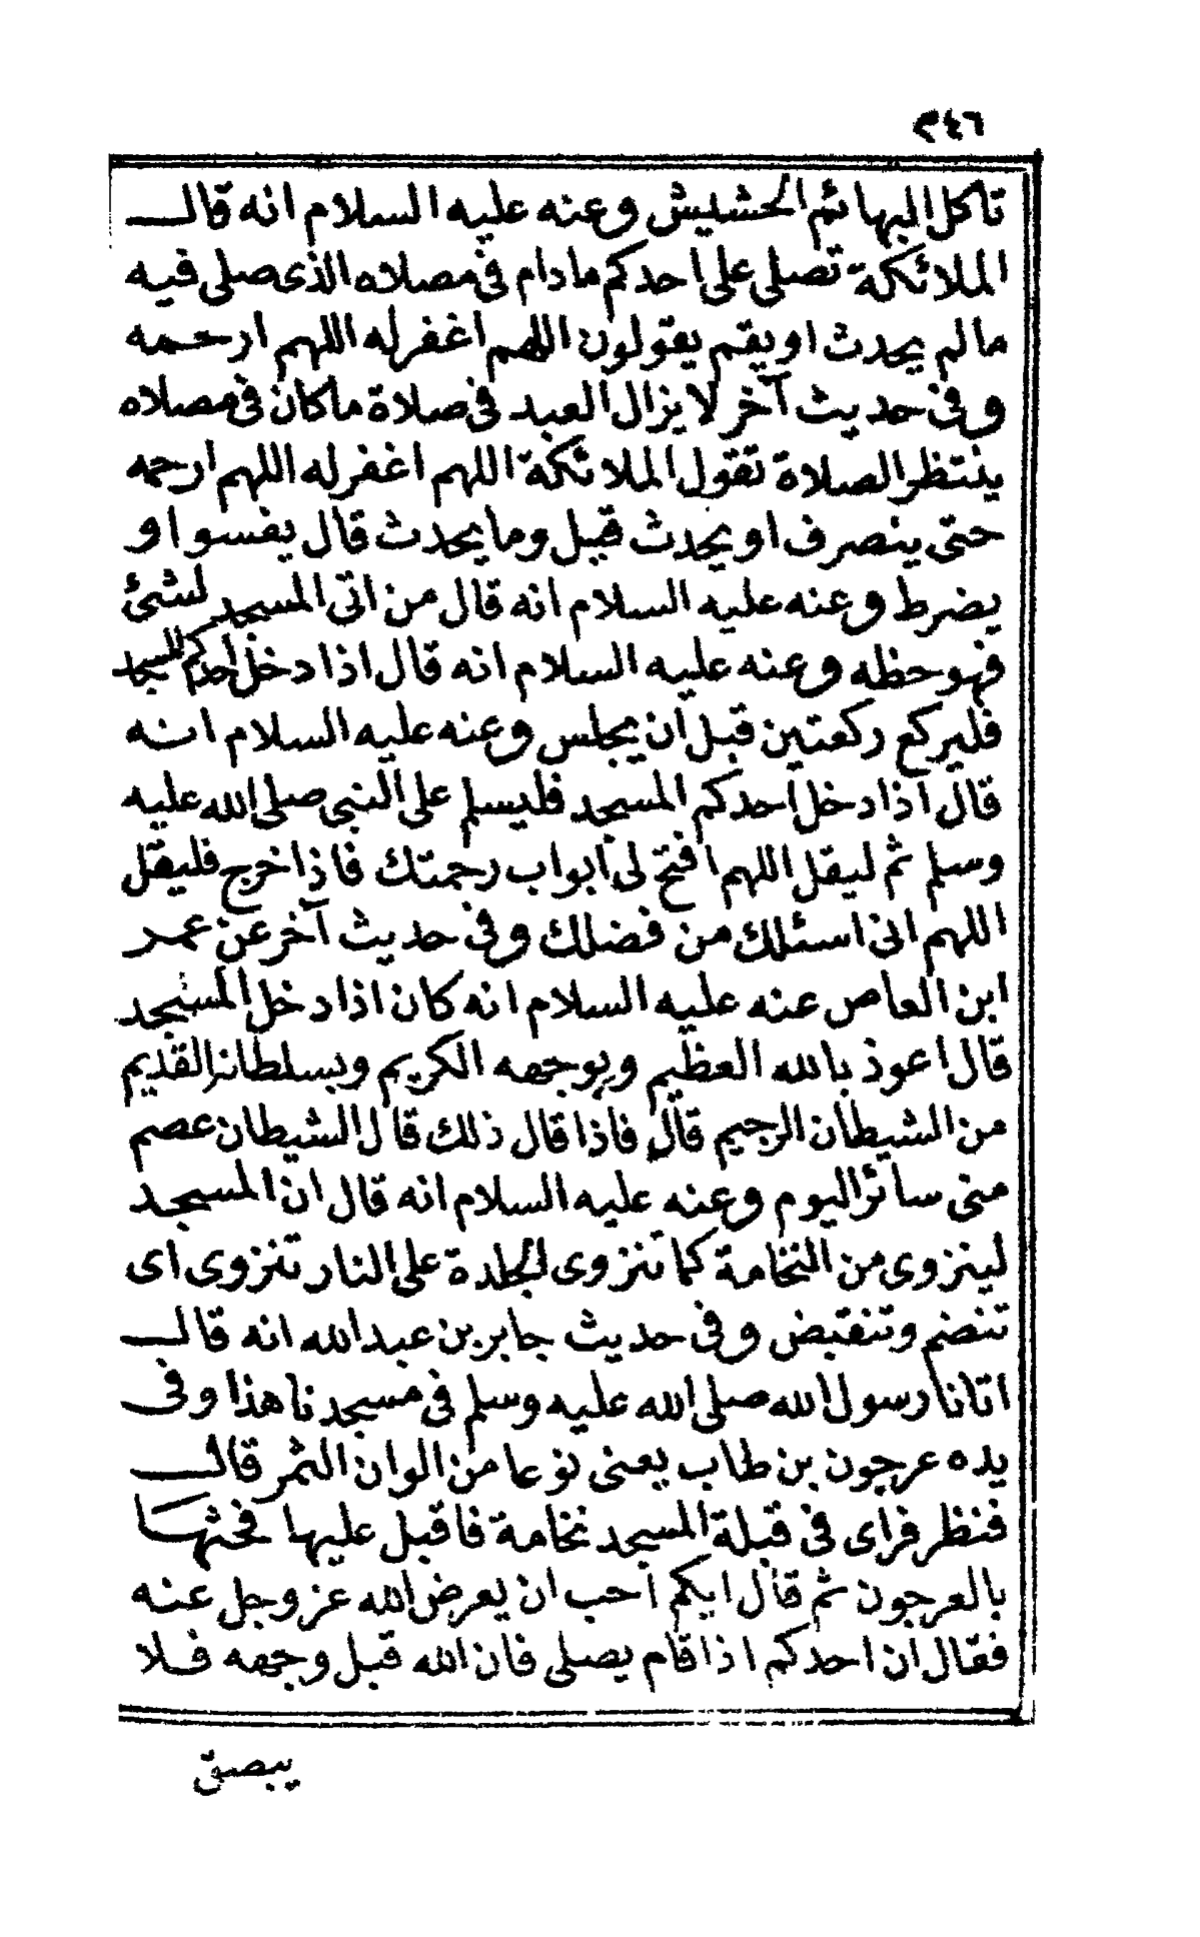 ٣٤٦
تأكل البهائم الحشيش وعنه عليه السلام انه قال
الملائكة تصلى على احدكم ما دام فى مصلاه الذى صلى فيه
ما لم يحدث او يقم يقولون اللهم اغفر له اللهم ارحمه
وفى حديث آخر لا يزال العبد فى صلاة ما كان فى مصلاه
ينتظر الصلاة تقول الملائكة اللهم اغفر له اللهم ارحمه
حتى ينصرف او يحدث قيل وما يحدث قال يفسو او
يضرط وعنه عليه السلام انه قال من اتى المسجد لشئ
فهو حظه وعنه عليه السلام انه قال اذا دخل احدكم المسجد
فليركع ركعتين قبل ان يجلس وعنه عليه السلام انه
قال اذا دخل احدكم المسجد فليسلم على النبى صلى الله عليه
وسلم ثم ليقل اللهم افتح لى ابواب رحمتك فاذا خرج فليقل
اللهم انى اسئلك من فضلك وفى حديث آخر عن عمر
ابن العاص عنه عليه السلام انه كان اذا دخل المسجد
قال اعوذ بالله العظيم وبوجهه الكريم وبسلطانه القديم
من الشيطان الرجيم قال فاذا قال ذلك قال الشيطان عصم
منى سائر اليوم وعنه عليه السلام انه قال ان المسجد
لينزوى من النخامة كما تنزوى الجلدة على النار تنزوى اى
تنضم وتنقبض وفى حديث جابر بن عبد الله انه قال
اتانا رسول الله صلى الله عليه وسلم فى مسجدنا هذا وفى
يده عرجون بن طاب يعنى نوعا من الوان التمر قال
فنظر فراى فى قبلة المسجد نخامة فاقبل عليها فحثها
بالعرجون ثم قال ايكم احب ان يعرض الله عز وجل عنه
فقال ان احدكم اذا قام يصلى فان الله قبل وجهه فلا
يبصق